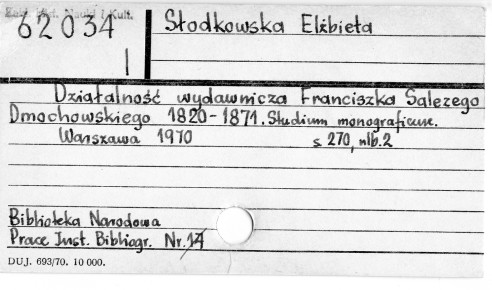 Zakł. Hist. Nauki i Kult.
62034
I
Słodkowska Elżbieta
Działalność wydawnicza Franciszka Salezego
Dmochowskiego 1820-1871. Studium monograficzne.
Warszawa 1970 s 270, nlb.2
Biblioteka Narodowa
Prace Inst. Bibliogr. Nr. 17
DUJ. 693/70. 10 000.